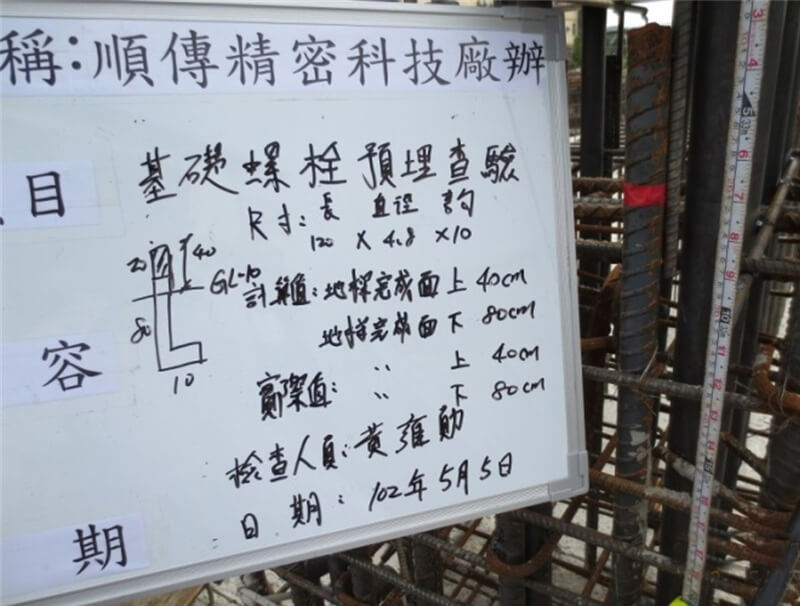 稱:順傳精密科技廠辦
目
基礎螺栓預埋查驗
尺寸: 長 直徑 鈎
120 × 4.8 × 10
20 40
GL-10
80
10
計算值: 地樑完成面 上 40cm
地樑完成面 下 80cm
容
實際值: 〃 上 40cm
〃 下 80cm
檢查人員: 黃雍勛
日期: 102年5月5日
期